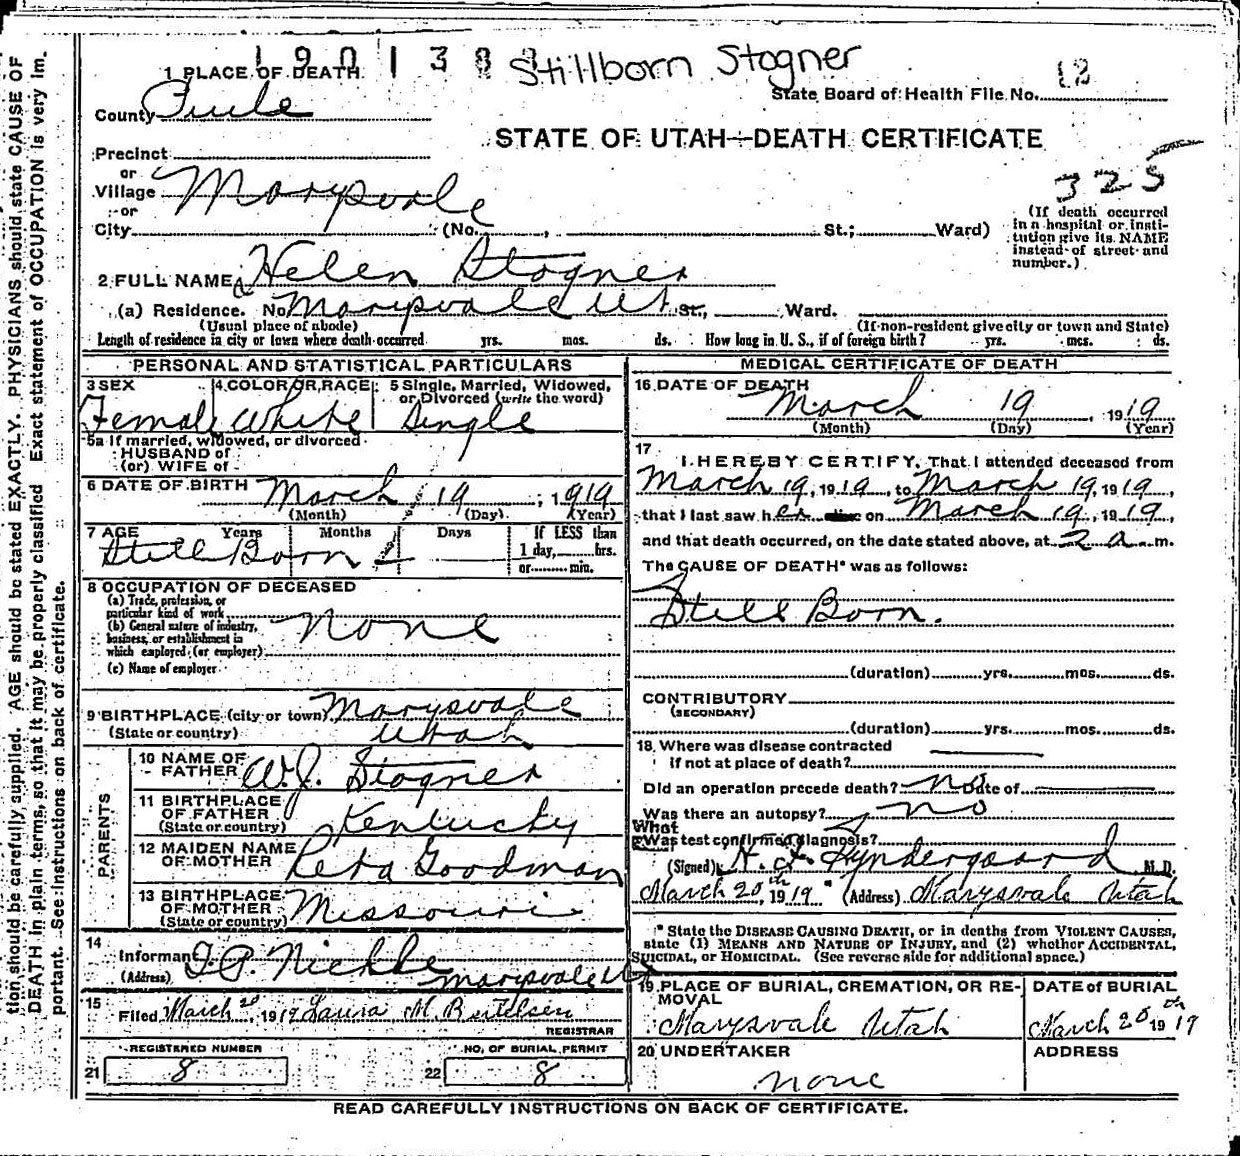 Stillborn Stogner
1 PLACE OF DEATH
State Board of Health File No. 12
County Piute
STATE OF UTAH—DEATH CERTIFICATE
Precinct
or
Village Marysvale
or
City (No. , St.; Ward)
325
(If death occurred
in a hospital or insti-
tution give its NAME
instead of street and
number.)
2 FULL NAME Helen Stogner
(a) Residence. No. Marysvale Ut. St., Ward.
(Usual place of abode) (If non-resident give city or town and State)
Length of residence in city or town where death occurred yrs. mos. ds. How long in U. S., if of foreign birth? yrs. mos. ds.
PERSONAL AND STATISTICAL PARTICULARS
3 SEX 4 COLOR OR RACE 5 Single, Married, Widowed,
or Divorced (write the word)
Female White Single
5a If married, widowed, or divorced
HUSBAND of
(or) WIFE of
6 DATE OF BIRTH March 19, 1919
(Month) (Day) (Year)
7 AGE Years Months Days If LESS than
1 day, hrs.
or min.
Still Born
8 OCCUPATION OF DECEASED
(a) Trade, profession, or
particular kind of work
(b) General nature of industry,
business, or establishment in
which employed (or employer)
None
(c) Name of employer
9 BIRTHPLACE (city or town) Marysvale
(State or country) Utah
PARENTS
10 NAME OF
FATHER W.J. Stogner
11 BIRTHPLACE
OF FATHER
(State or country) Kentucky
12 MAIDEN NAME
OF MOTHER Reta Goodman
13 BIRTHPLACE
OF MOTHER
(State or country) Missouri
14
Informant Nickle
(Address) Marysvale Ut
15
Filed March 20, 1919 Laura M. Bertelsen
REGISTRAR
REGISTERED NUMBER
21 8
NO. OF BURIAL PERMIT
22 8
MEDICAL CERTIFICATE OF DEATH
16 DATE OF DEATH
March 19, 1919
(Month) (Day) (Year)
17
I HEREBY CERTIFY, That I attended deceased from
March 19, 1919, to March 19, 1919,
that I last saw her alive on March 19, 1919,
and that death occurred, on the date stated above, at 2 a. m.
The CAUSE OF DEATH* was as follows:
Still Born.
(duration) yrs. mos. ds.
CONTRIBUTORY
(SECONDARY)
(duration) yrs. mos. ds.
18 Where was disease contracted
if not at place of death?
Did an operation precede death? No Date of
Was there an autopsy? No
What
Was test confirmed diagnosis?
(Signed) Syndergaard M.D.
March 20th, 1919 (Address) Marysvale Utah
* State the DISEASE CAUSING DEATH, or in deaths from VIOLENT CAUSES,
state (1) MEANS AND NATURE OF INJURY, and (2) whether ACCIDENTAL,
SUICIDAL, or HOMICIDAL. (See reverse side for additional space.)
19 PLACE OF BURIAL, CREMATION, OR RE-
MOVAL
Marysvale Utah
DATE of BURIAL
March 20th 1919
20 UNDERTAKER
None
ADDRESS
READ CAREFULLY INSTRUCTIONS ON BACK OF CERTIFICATE.
tion should be carefully supplied. AGE should be stated EXACTLY. PHYSICIANS should state CAUSE OF
DEATH in plain terms, so that it may be properly classified. Exact statement of OCCUPATION is very im-
portant. See instructions on back of certificate.